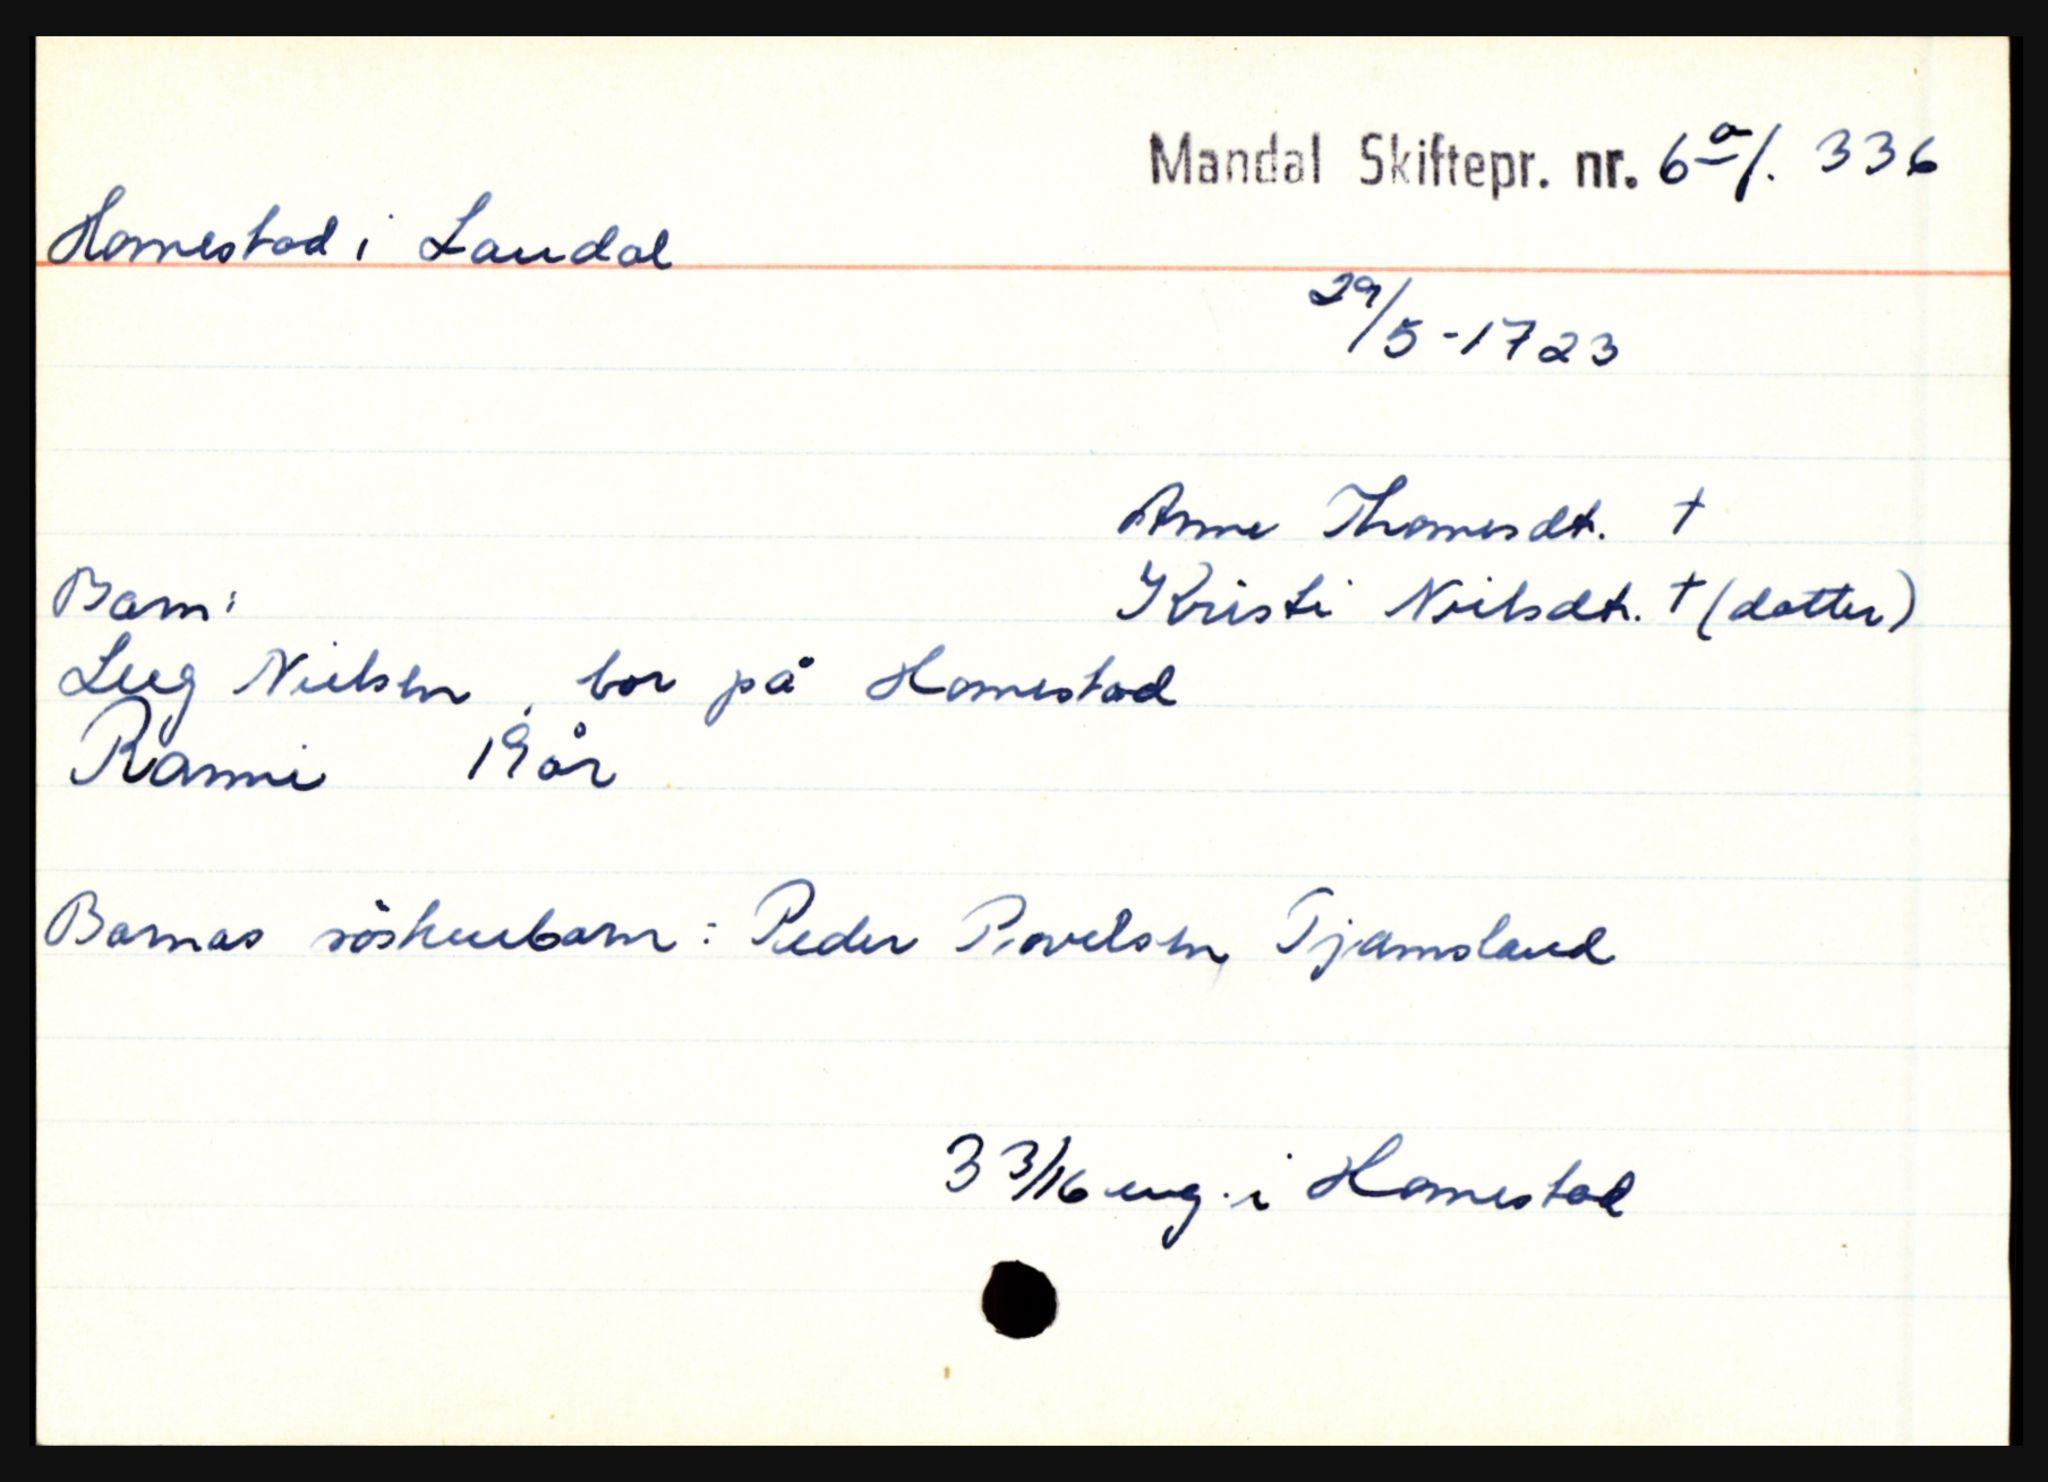 Mandal Skiftepr. nr. 6a/. 336
Homestad i Laudal
29/5-1723
Anne Thomesdt. †
Barn: Kristi Neilsdt. † (datter)
Leeg Nielsen, bor på Homestad
Ranni 19 år
Barnas söskenbarn: Peder Povelsen Tjamsland
3 3/16 eng. i Homestad